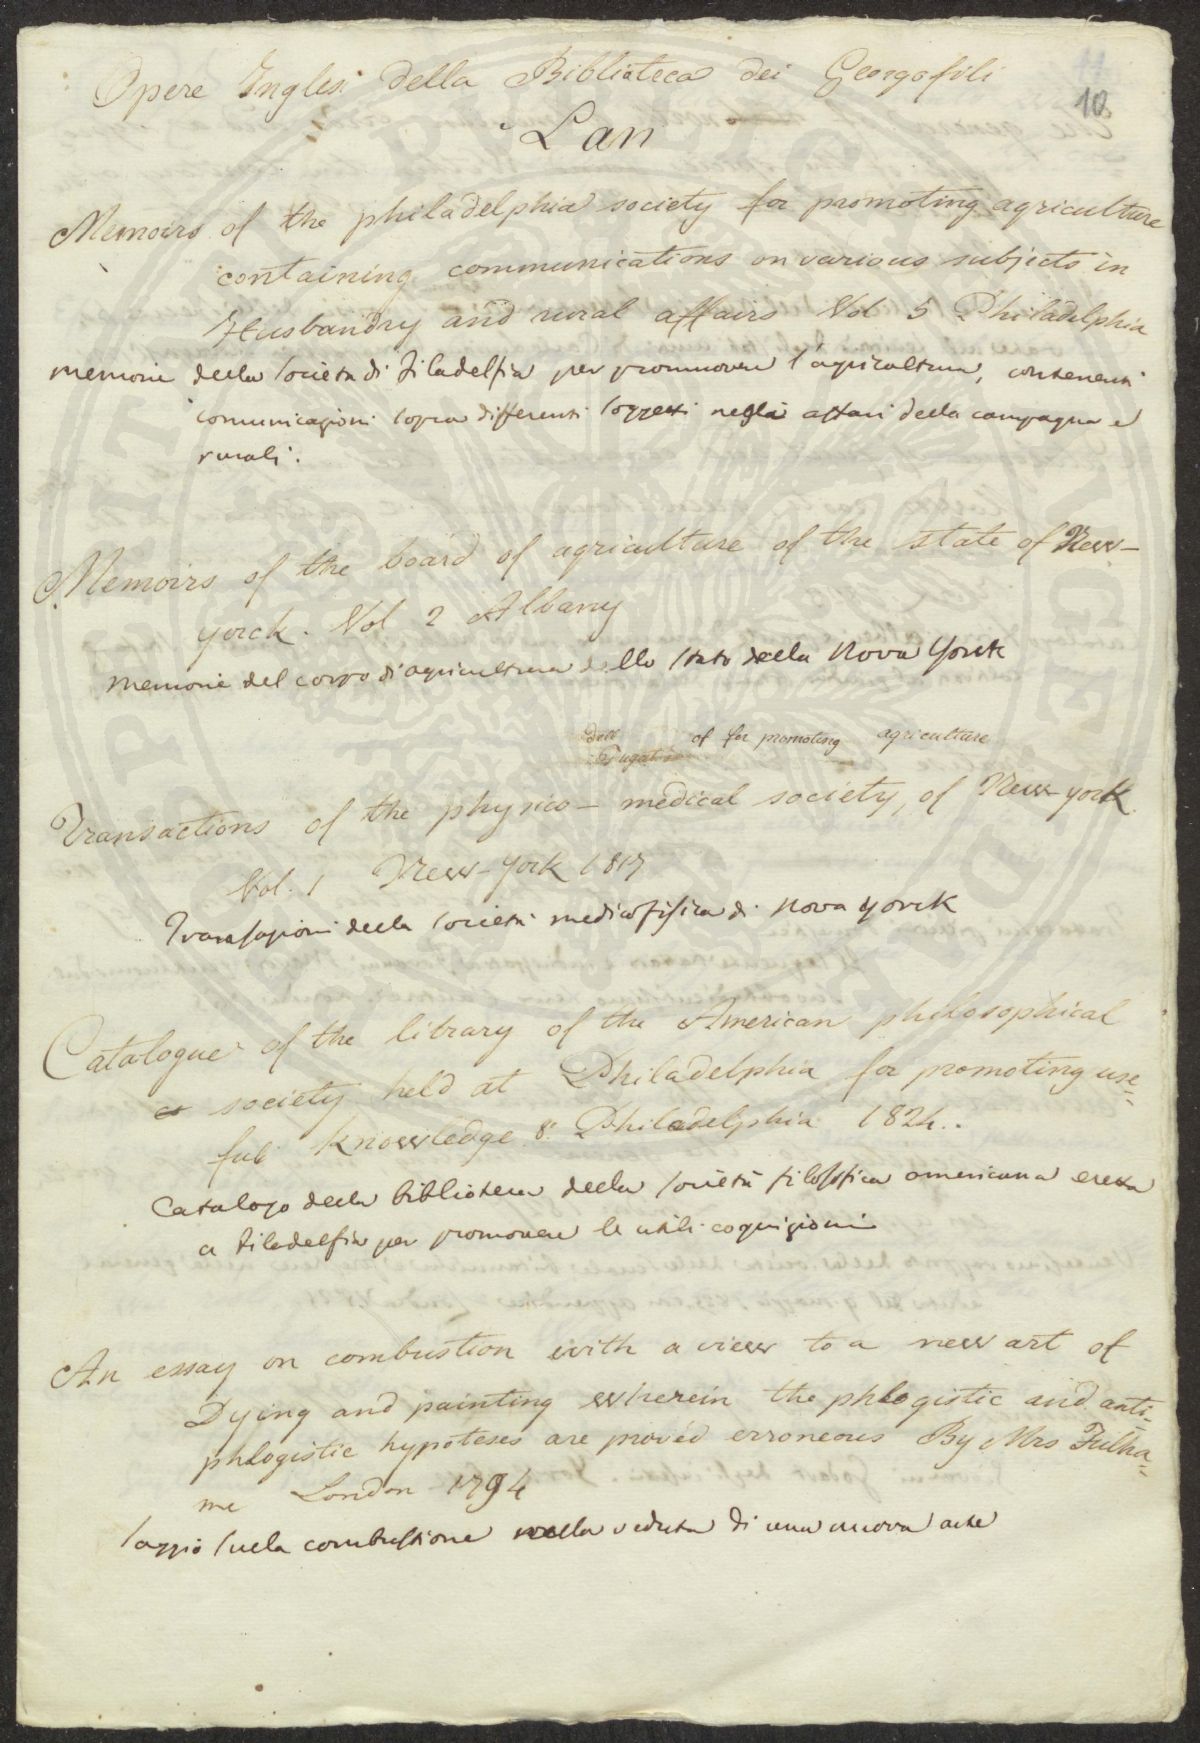 Opere Inglesi della Biblioteca dei Georgofili
10
11
Lan
Memoirs of the philadelphia society for promoting agriculture
containing communications on various subjects in
Husbandry and rural affairs Vol 5 Philadelphia
memorie della società di filadelfia per promuovere l'agricoltura, contenenti
comunicazioni sopra differenti soggetti negli affari della campagna e
rurali.
Memoirs of the board of agriculture of the state of New-
yorck. Vol 2 Albany
memorie del corpo di agricultura dello stato della Nova Yorck
of for promoting agriculture
Transactions of the physico-medical society, of New-york
Vol. 1 New-york 1817
Transazioni della società medicofisica di Nova Yorck
Catalogue of the library of the American philosophical
society held at Philadelphia for promoting use=
ful knowledge 8.° Philadelphia 1824..
Catalogo della biblioteca della società filosofica americana eretta
a filadelfia per promovere le utili cognizioni
An essay on combustion with a view to a new art of
Dying and painting wherein the phlogistic and anti=
phlogistic hypoteses are proved erroneous By Mrs Fulha=
me London 1794
saggio sulla combustione nella veduta di una nuova arte